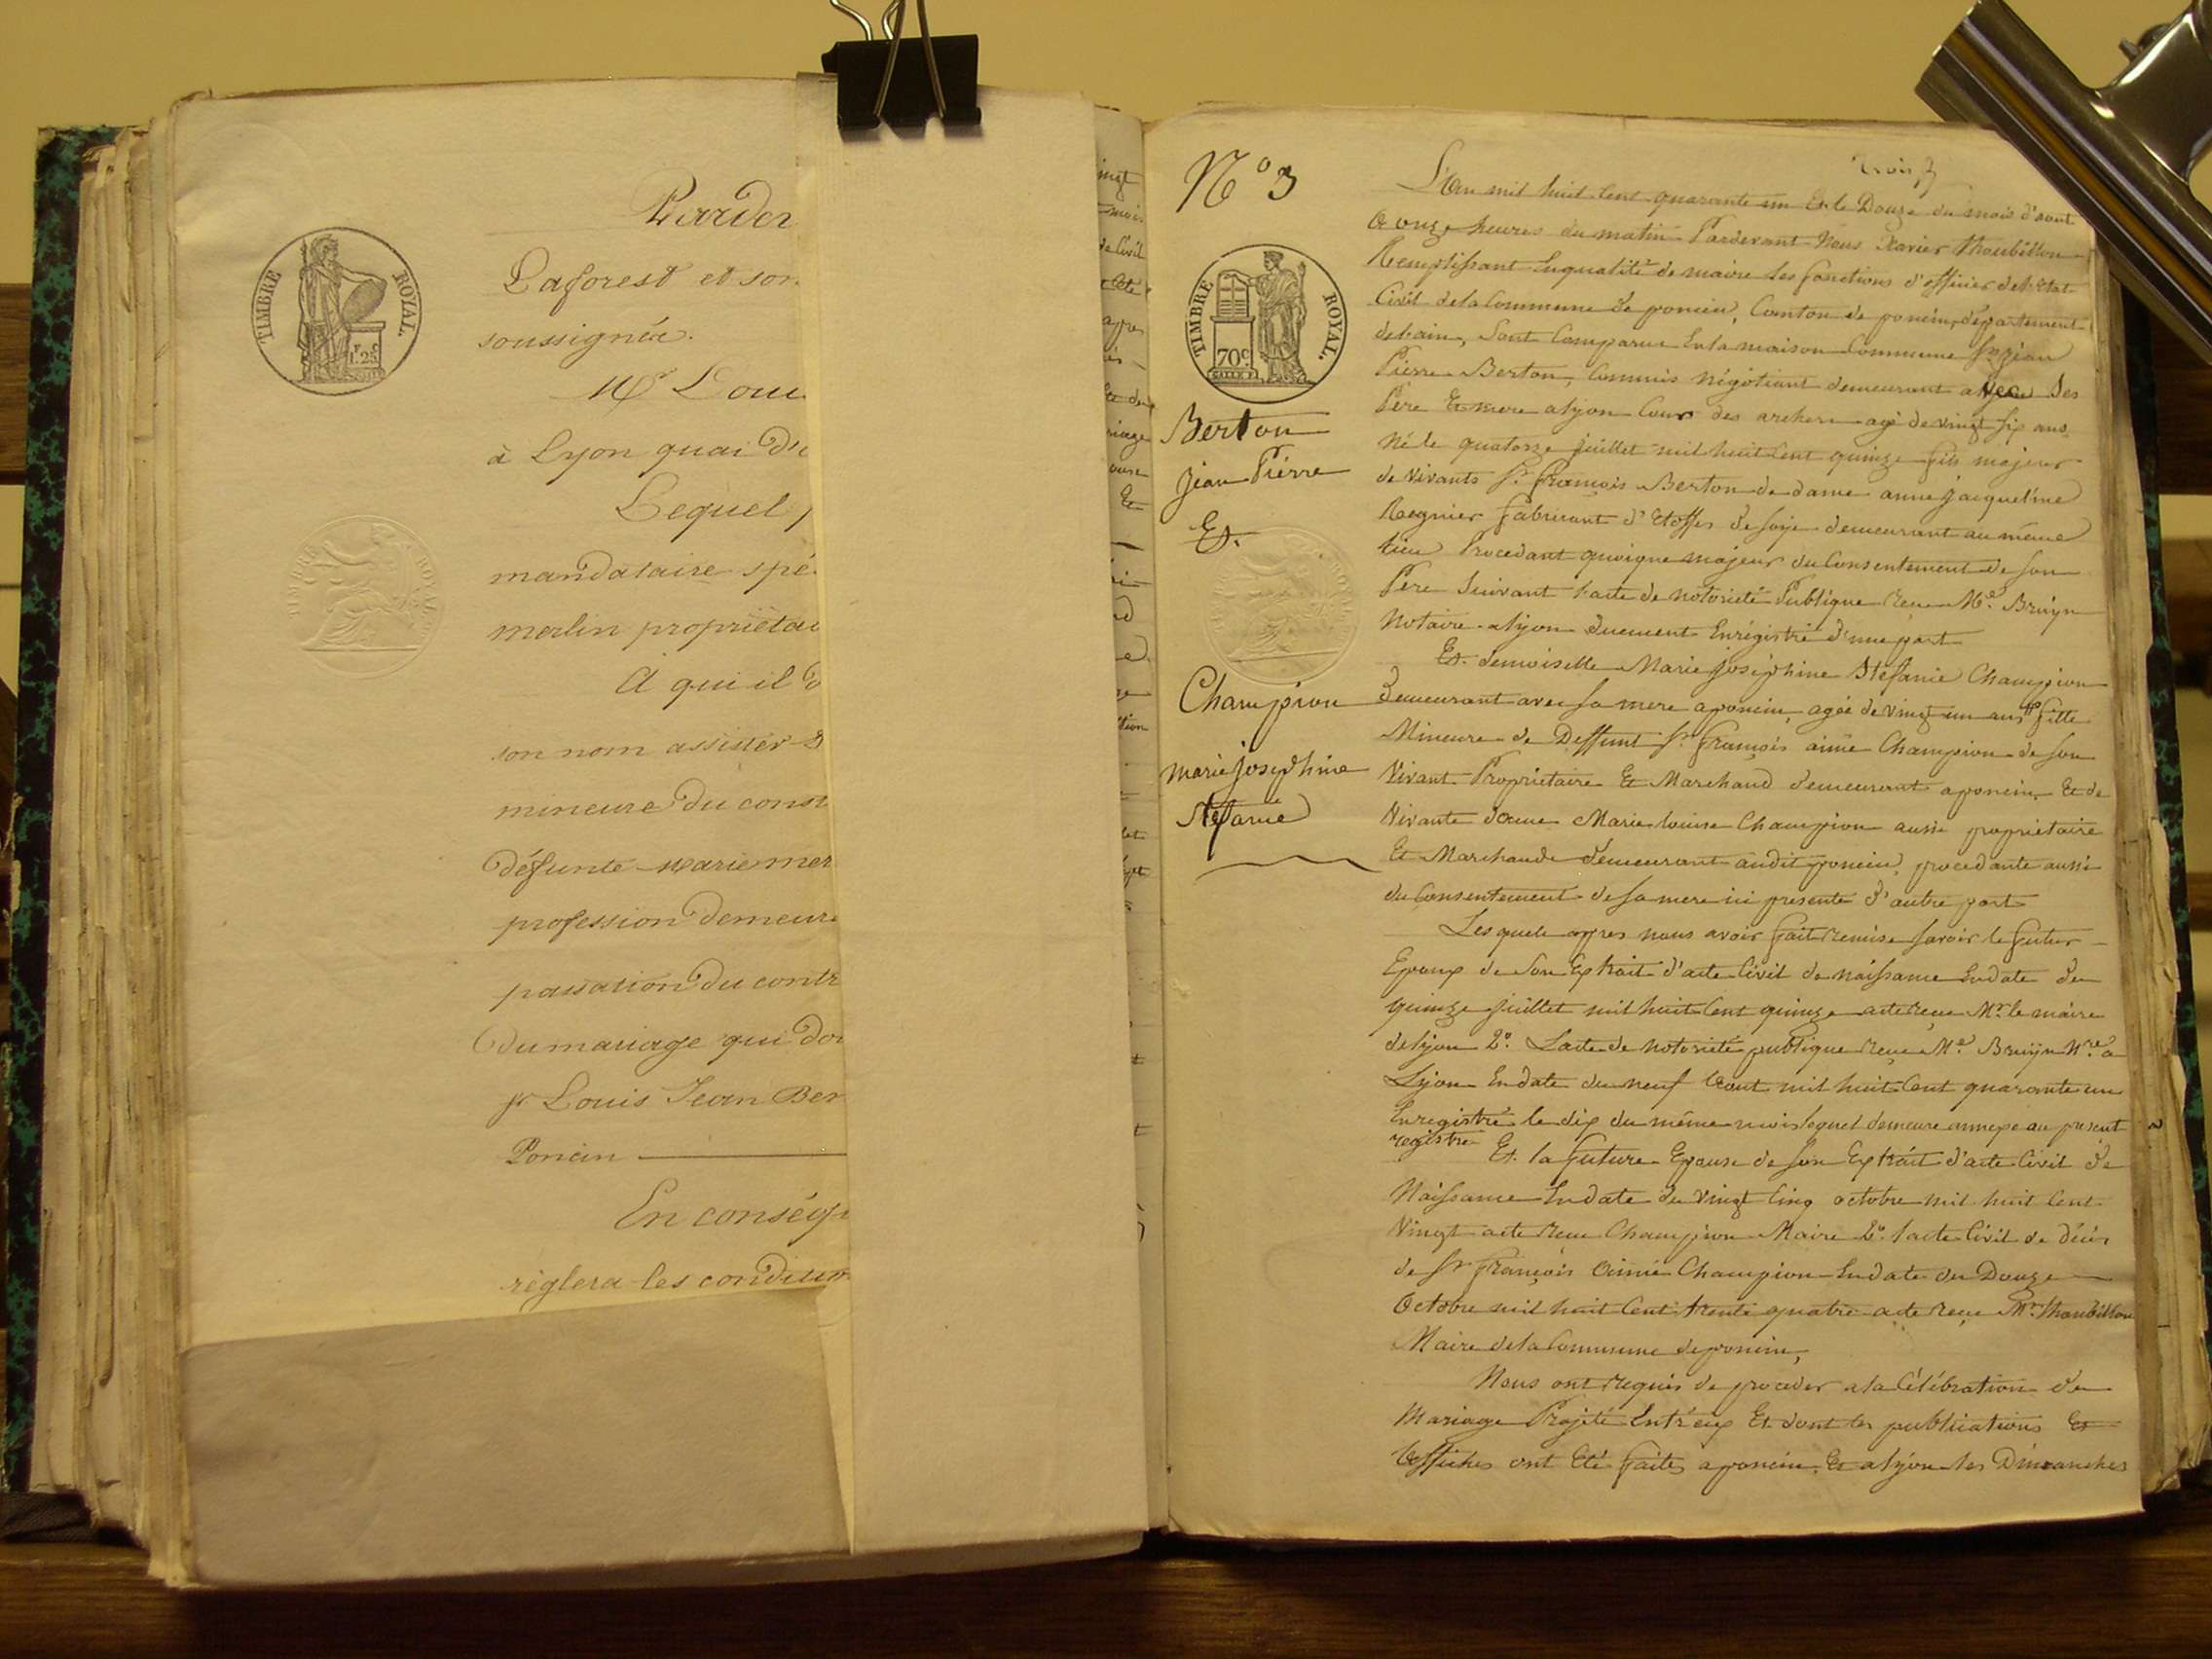 TIMBRE ROYAL.
1F. 25C
Laforest et son
soussigné.
Mr Loui
à Lyon quai d
Lequel
mandataire spé
merlin propriétai
A qui il d
son nom assister
mineure du cons
défunte marie mer
profession demeur
passation du contr
du mariage qui doi
sr Louis Jean Ber
Poncin
En conséq
règlera les condition
TIMBRE ROYAL
trois 3
N° 3
TIMBRE ROYAL.
70C
Berton
jean Pierre
Et.
Champion
marie josephine
Stefanie
L'an mil huit cent quarante un Et le Douze du mois d'aout
a onze heures du matin Pardevant Nous Xavier Thoubillon
Remplissant la qualité de maire les fonctions d'officier de l'Etat
Civil de la Commune de poncin, Canton de poncin, département
de l'ain, Sont Comparus En la maison Commune Sr jean
Pierre Berton, Commis négotiant demeurant avec Ses
Père Et mere a lyon Cour des archers agé de vingt six ans
Né le quatorze juillet mil huit Cent quinze fils majeur
de vivants Sr françois Berton de dame anne jacqueline
Regnier fabricant d'Etoffes de soye demeurant au même
lieu Procedant quoique majeur du Consentement de son
Père Suivant l'acte de notorieté Publique recu Me Bruyn
Notaire a lyon duement Enrégistré d'une part
Et. demoiselle Marie josephine Stefanie Champion
demeurant avec sa mere a poncin, agée de vingt un ans fille
Mineure de Deffunt Sr françois aimé Champion de son
Vivant Propriétaire Et Marchand demeurant a poncin, Et de
Vivante dame Marie louise Champion aussi propriétaire
Et Marchande demeurant audit poncin, procedante aussi
du Consentement de sa mere ici presente d'autre part
Lesquels apres nous avoir fait remise savoir le futur
Epoux de son Extrait d'acte Civil de naissance En date du
quinze juillet mil huit Cent quinze acte recu Mr le maire
de lyon 2o. L'acte de notorieté publique recu Me Bruyn Nre a
Lyon En date du neuf aout mil huit Cent quarante un
Enregistré le dix du même mois lequel demeure annexé au present
registre Et. la future Epouse de son Extrait d'acte Civil de
Naissance En date du vingt Cinq octobre mil huit Cent
Vingt acte recu Champion Maire 2o. l'acte Civil de décès
de Sr françois Aimé Champion En date du Douze
Octobre mil huit Cent trente quatre acte recu Mr Thoubillon
Maire de la Commune de poncin,
Nous ont requis de proceder a la Célébration du
Mariage Projeté Entr'eux Et dont les publications Et
affiches ont Eté faites a poncin, Et a lyon les Dimanches